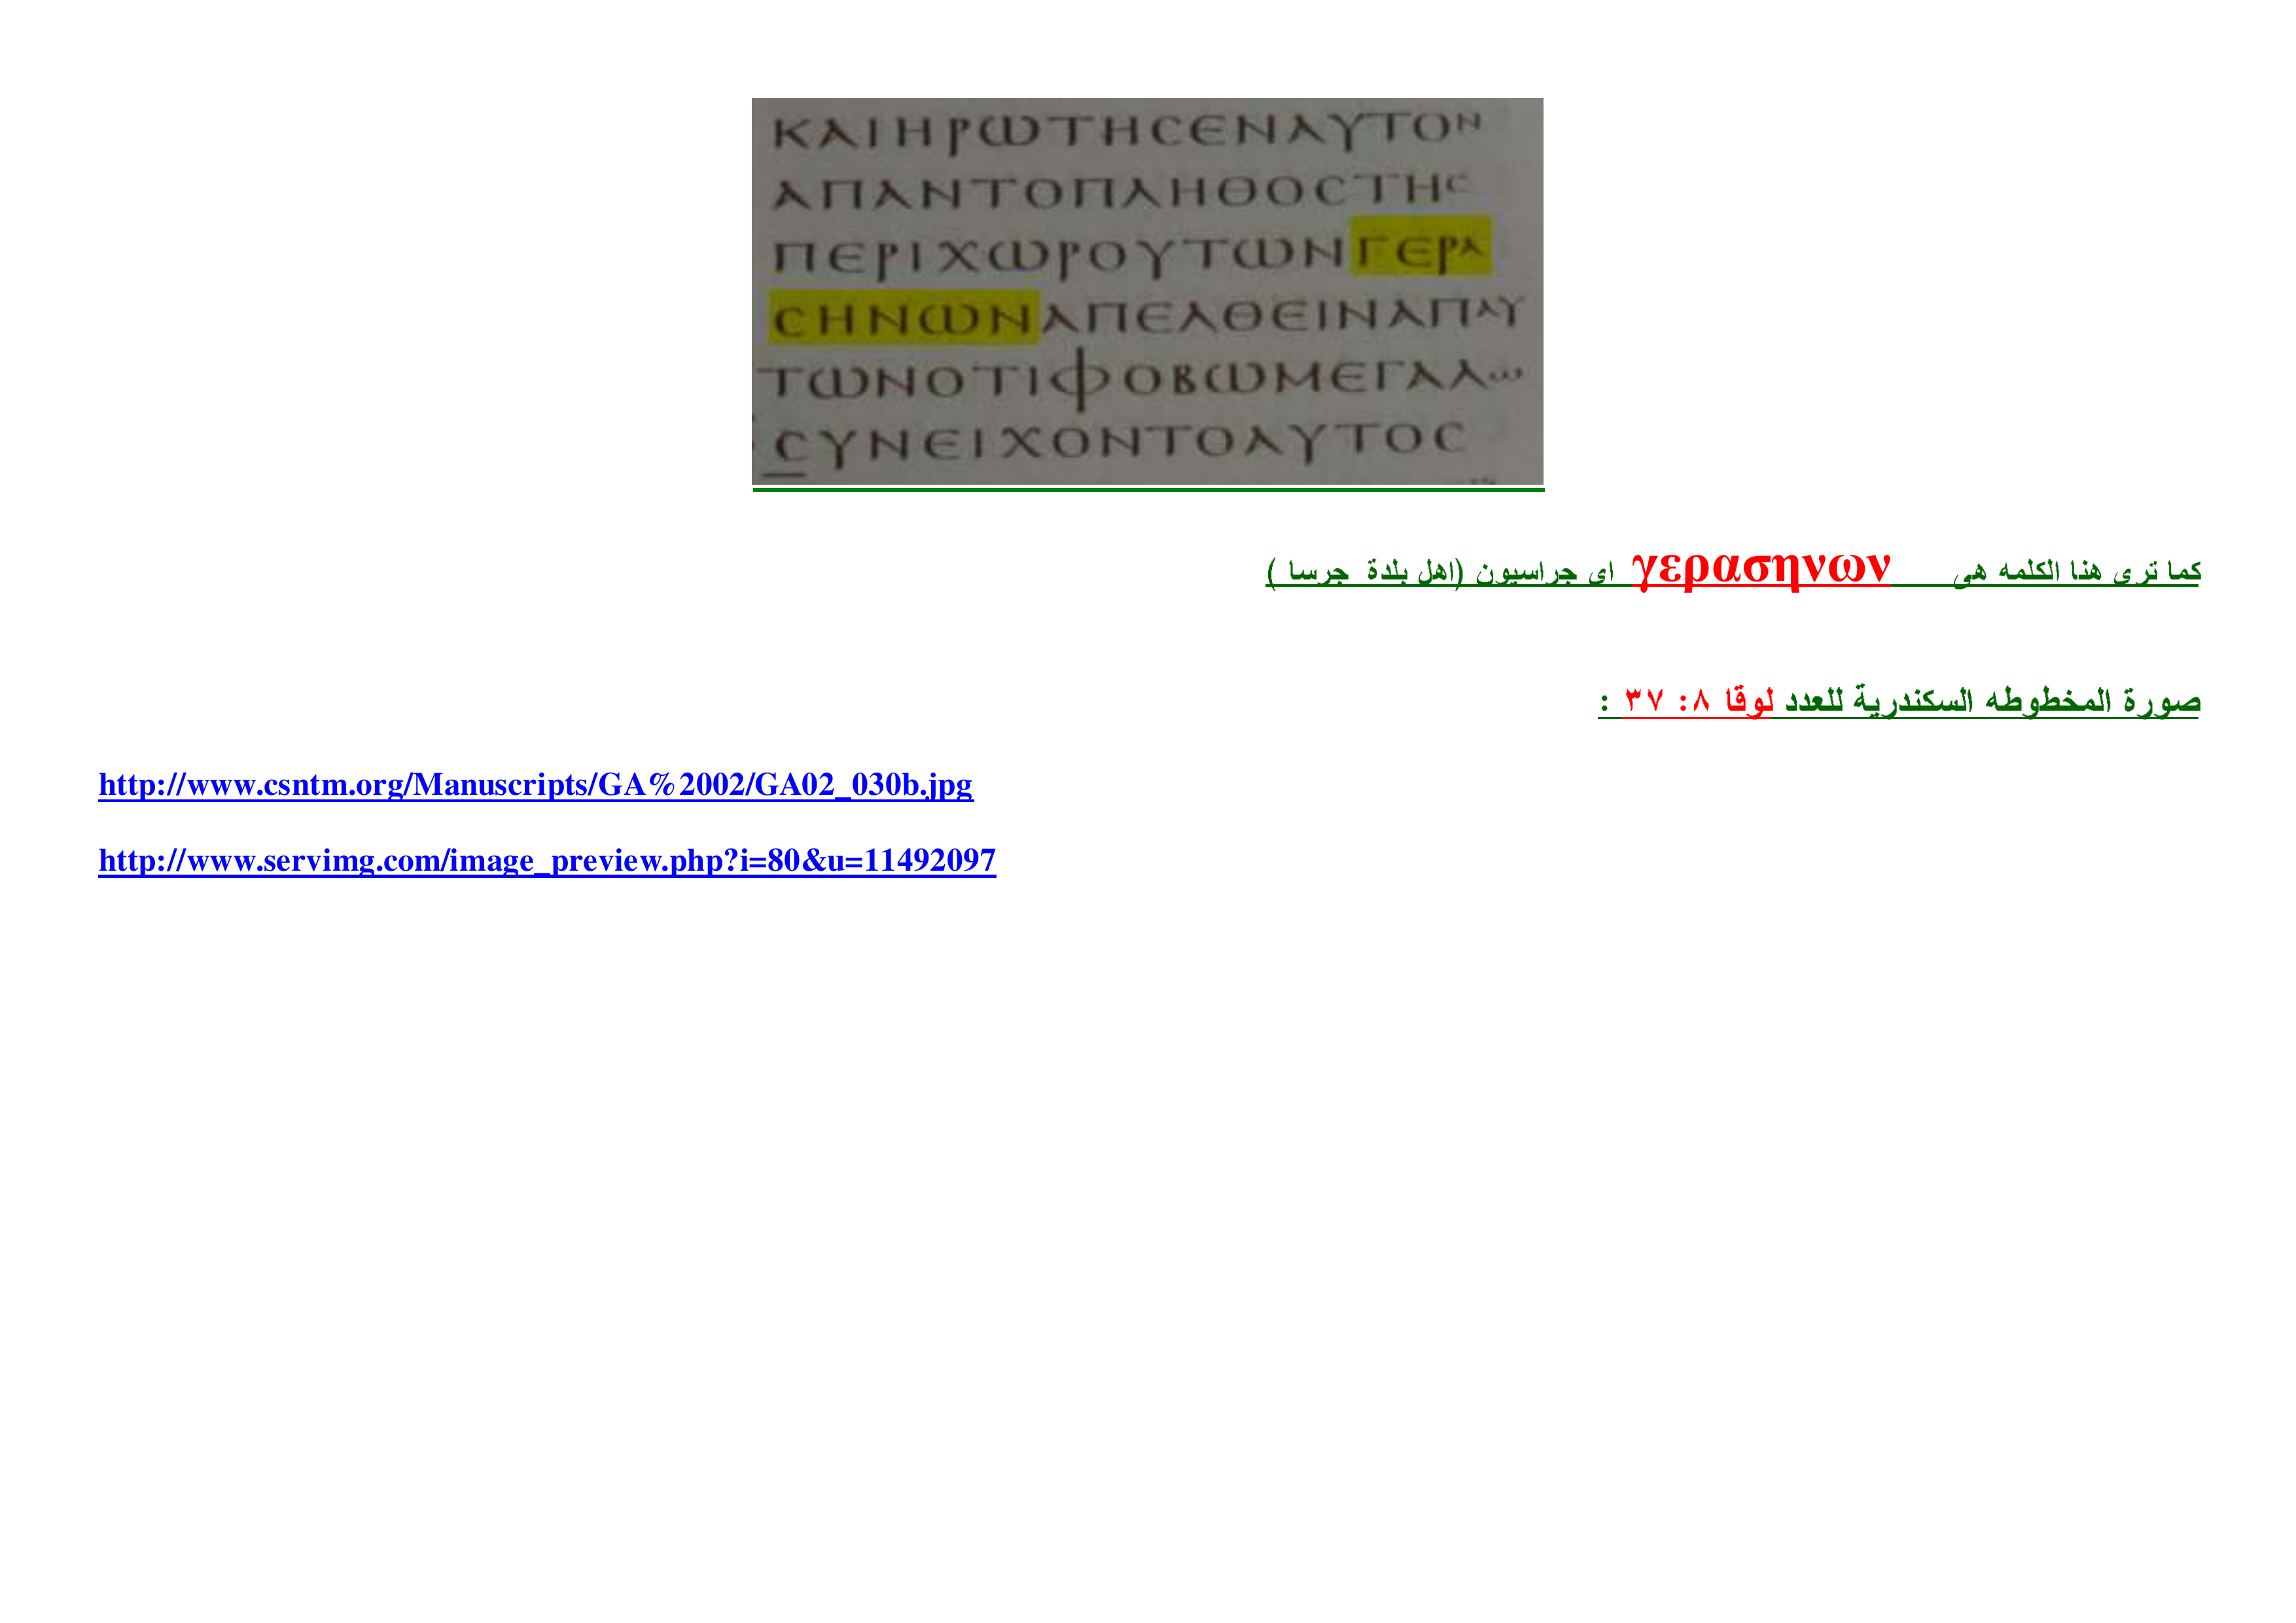 ΚΑΙΗΡΩΤΗϹΕΝΑΥΤΟΝ
ΑΠΑΝΤΟΠΛΗΘΟϹΤΗϹ
ΠΕΡΙΧΩΡΟΥΤΩΝΓΕΡΑ
ϹΗΝΩΝΑΠΕΛΘΕΙΝΑΠΑΥ
ΤΩΝΟΤΙΦΟΒΩΜΕΓΑΛΩ
ϹΥΝΕΙΧΟΝΤΟΑΥΤΟϹ
كما ترى هنا الكلمه هى γερασηνων اى جراسيون (اهل بلدة جرسا )
صورة المخطوطه السكندرية للعدد لوقا ٨: ٣٧ :
http://www.csntm.org/Manuscripts/GA%2002/GA02_030b.jpg
http://www.servimg.com/image_preview.php?i=80&u=11492097